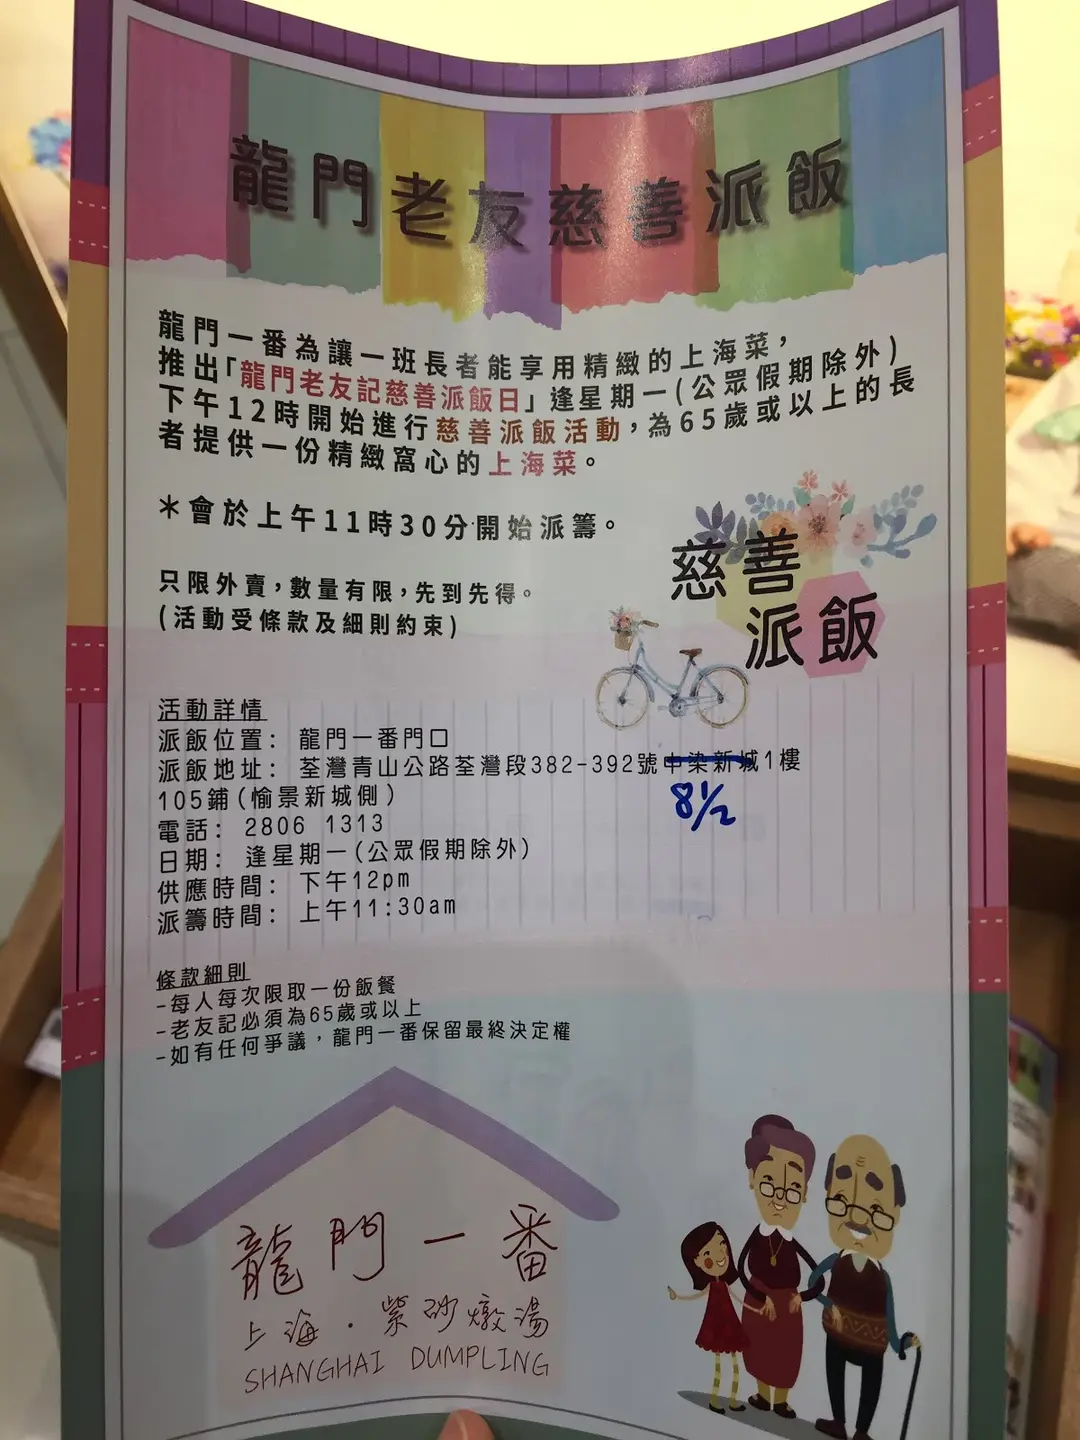 龍門老友慈善派飯
龍門一番為讓一班長者能享用精緻的上海菜，
推出「龍門老友記慈善派飯日」逢星期一(公眾假期除外)
下午12時開始進行慈善派飯活動，為65歲或以上的長
者提供一份精緻窩心的上海菜。
＊會於上午11時30分開始派籌。
慈善
派飯
只限外賣，數量有限，先到先得。
(活動受條款及細則約束)
活動詳情
派飯位置: 龍門一番門口
派飯地址: 荃灣青山公路荃灣段382-392號中染新城1樓
8½
105鋪(愉景新城側)
電話: 2806 1313
日期: 逢星期一(公眾假期除外)
供應時間: 下午12pm
派籌時間: 上午11:30am
條款細則
-每人每次限取一份飯餐
-老友記必須為65歲或以上
-如有任何爭議，龍門一番保留最終決定權
龍門一番
上海．紫砂燉湯
SHANGHAI DUMPLING